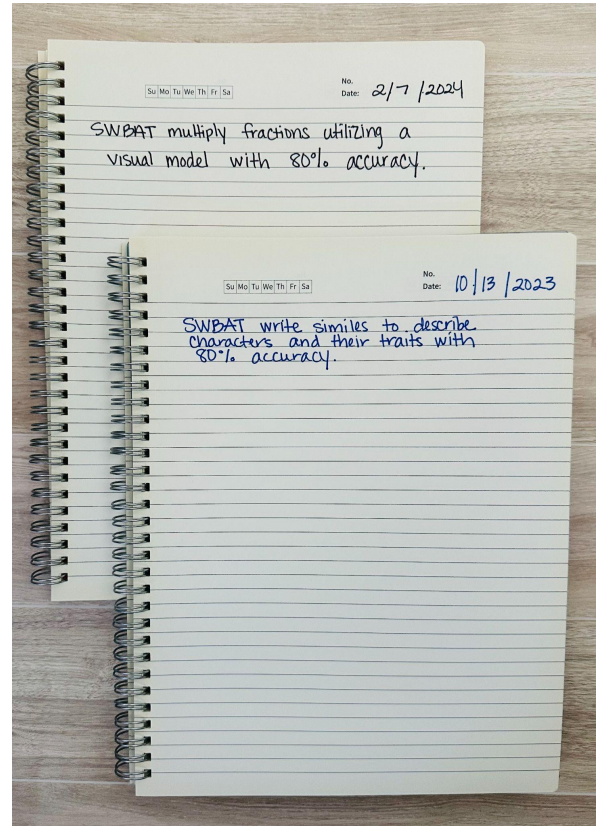 Su Mo Tu We Th Fr Sa
No.
Date: 2/7/2024
SWBAT multiply fractions utilizing a
visual model with 80% accuracy.
Su Mo Tu We Th Fr Sa
No.
Date: 10/13/2023
SWBAT write similes to describe
characters and their traits with
80% accuracy.